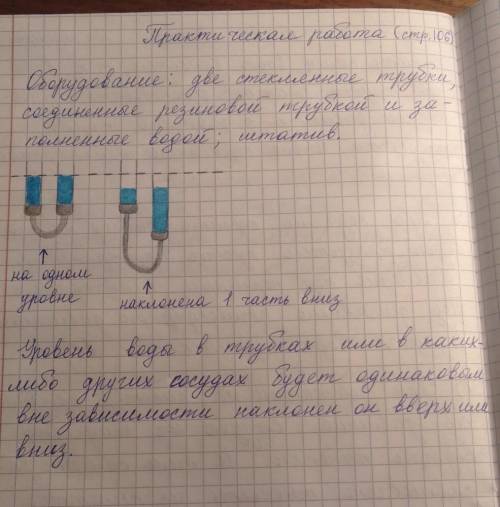 Практическая работа (стр.106)
Оборудование: две стеклянные трубки,
соединенные резиновой трубкой и за-
полненные водой; штатив.
на одном
уровне
наклонена 1 часть вниз
Уровень воды в трубках или в каких-
либо других сосудах будет одинаковом
вне зависимости наклонен он вверх или
вниз.